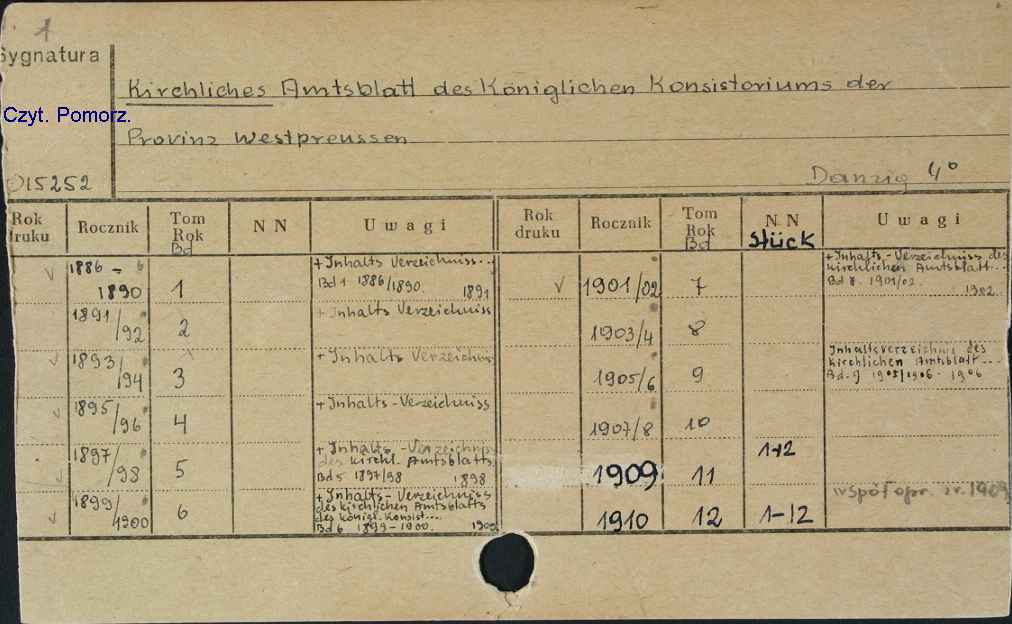 1
Sygnatura
Kirchliches Amtsblatt des Königlichen Konsistoriums der
Czyt. Pomorz.
Provinz Westpreussen
015252
Danzig 4°
Rok druku Rocznik Tom Rok Bd NN Uwagi Rok druku Rocznik Tom Rok Bd NN Stück Uwagi
√ 1886-1890 1 + Inhalts Verzeichniss...
Bd 1 1886/1890. 1891
1891/92 2 + Inhalts Verzeichniss
√ 1893/94 3 + Inhalts Verzeichnis
√ 1895/96 4 + Inhalts-Verzeichniss
√ 1897/98 5 + Inhalts-Verzeichnis
des kirchl. Amtsblatts
Bd 5 1897/98 1898
√ 1899/1900 6 + Inhalts-Verzeichniss
des kirchlichen Amtsblatts
des königl. Konsist....
Bd 6 1899-1900. 1900
√ 1901/02 7 + Inhalts-Verzeichniss des
kirchlichen Amtsblatt...
Bd 7. 1901/02. 1902.
1903/4 8
1905/6 9 Inhaltsverzeichnis des
kirchlichen Amtsblatt...
Bd. 9 1905/1906. 1906
1907/8 10
1909 11 1-12
1910 12 1-12 współopr. z r. 1909